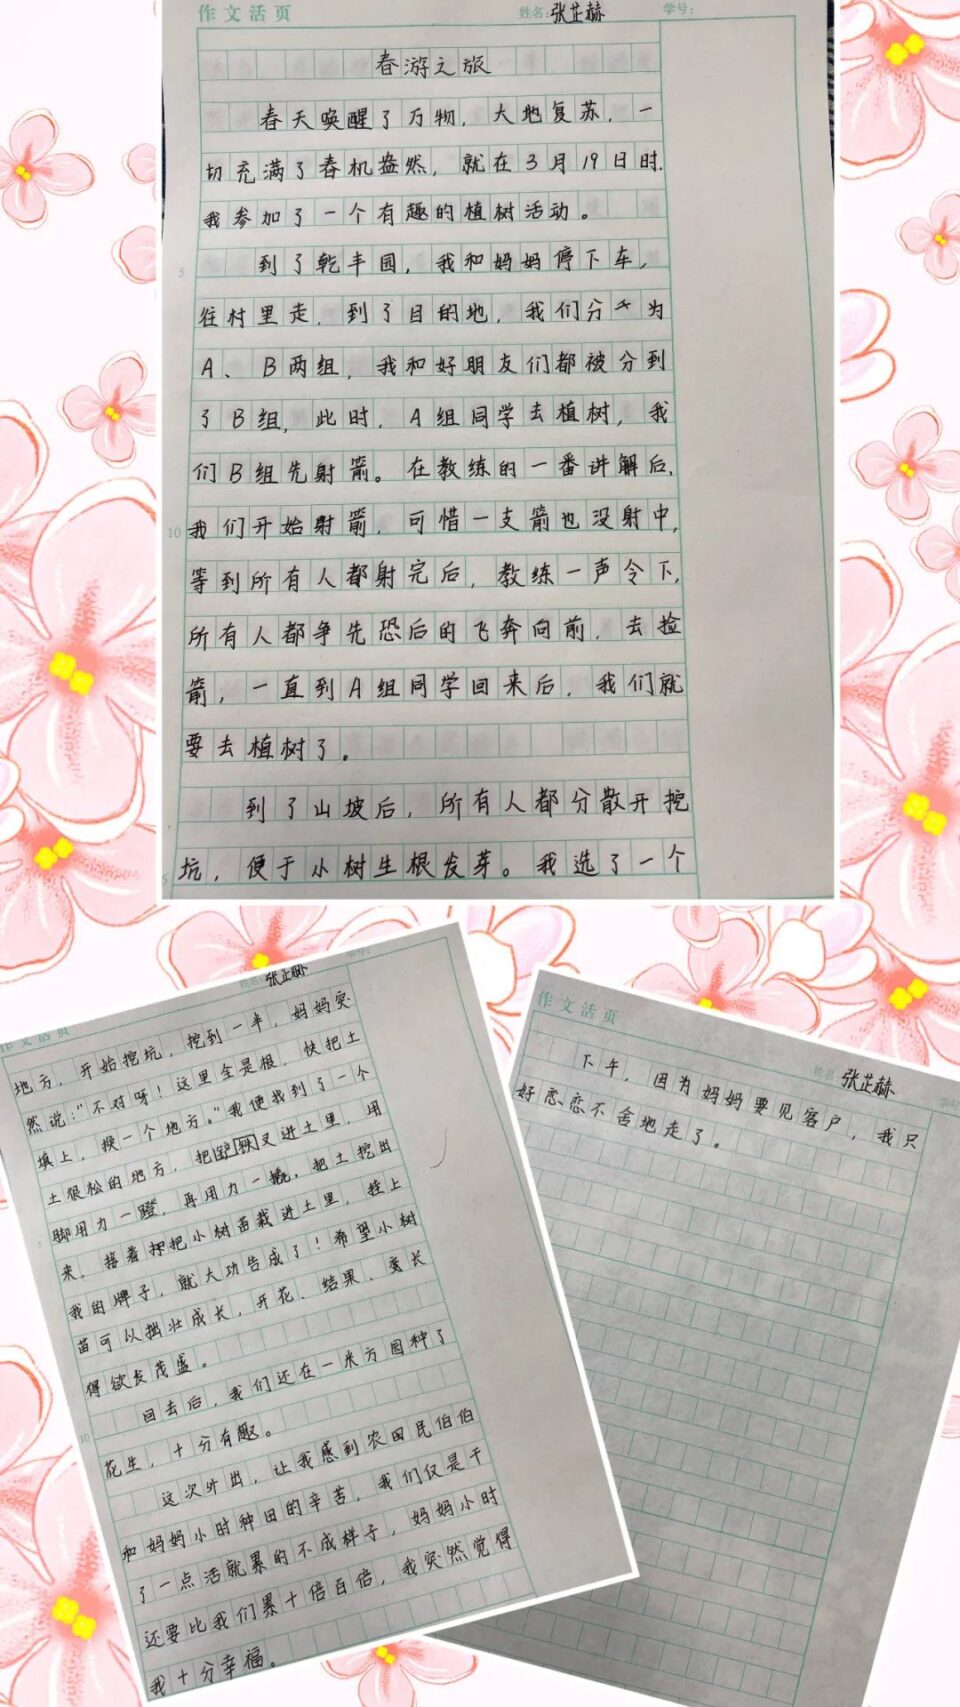 作文活页 姓名:张芷赫 学号:
春游之旅
春天唤醒了万物，大地复苏，一
切充满了春机盎然，就在3月19日时.
我参加了一个有趣的植树活动。
5
到了乾丰园，我和妈妈停下车，
往村里走，到了目的地，我们分为
A、B两组，我和好朋友们都被分到
了B组，此时，A组同学去植树，我
们B组先射箭。在教练的一番讲解后,
10
我们开始射箭，可惜一支箭也没射中,
等到所有人都射完后，教练一声令下,
所有人都争先恐后的飞奔向前，去捡
箭，一直到A组同学回来后，我们就
要去植树了。
到了山坡后，所有人都分散开挖
坑，便于小树生根发芽。我选了一个
作文活页 姓名:张芷赫 学号:
地方，开始挖坑，挖到一半，妈妈突
然说:“不对呀！这里全是根，快把土
填上，换一个地方。”我便找到了一个
土很松的地方，把铲铁叉进土里，用
脚用力一蹬，再用力一撬，把土挖出
来，接着把小树苗栽进土里，挂上
我的牌子，就大功告成了！希望小树
苗可以拙壮成长，开花、结果、变长
得欲长茂盛。
回去后，我们还在一米方园种了
10
花生，十分有趣。
这次外出，让我感到农田民伯伯
和妈妈小时种田的辛苦，我们仅是干
了一点活就累的不成样子，妈妈小时
还要比我们累十倍百倍，我突然觉得
我十分幸福。
作文活页 姓名:张芷赫 学号
下午，因为妈妈要见客户，我只
好恋恋不舍地走了。